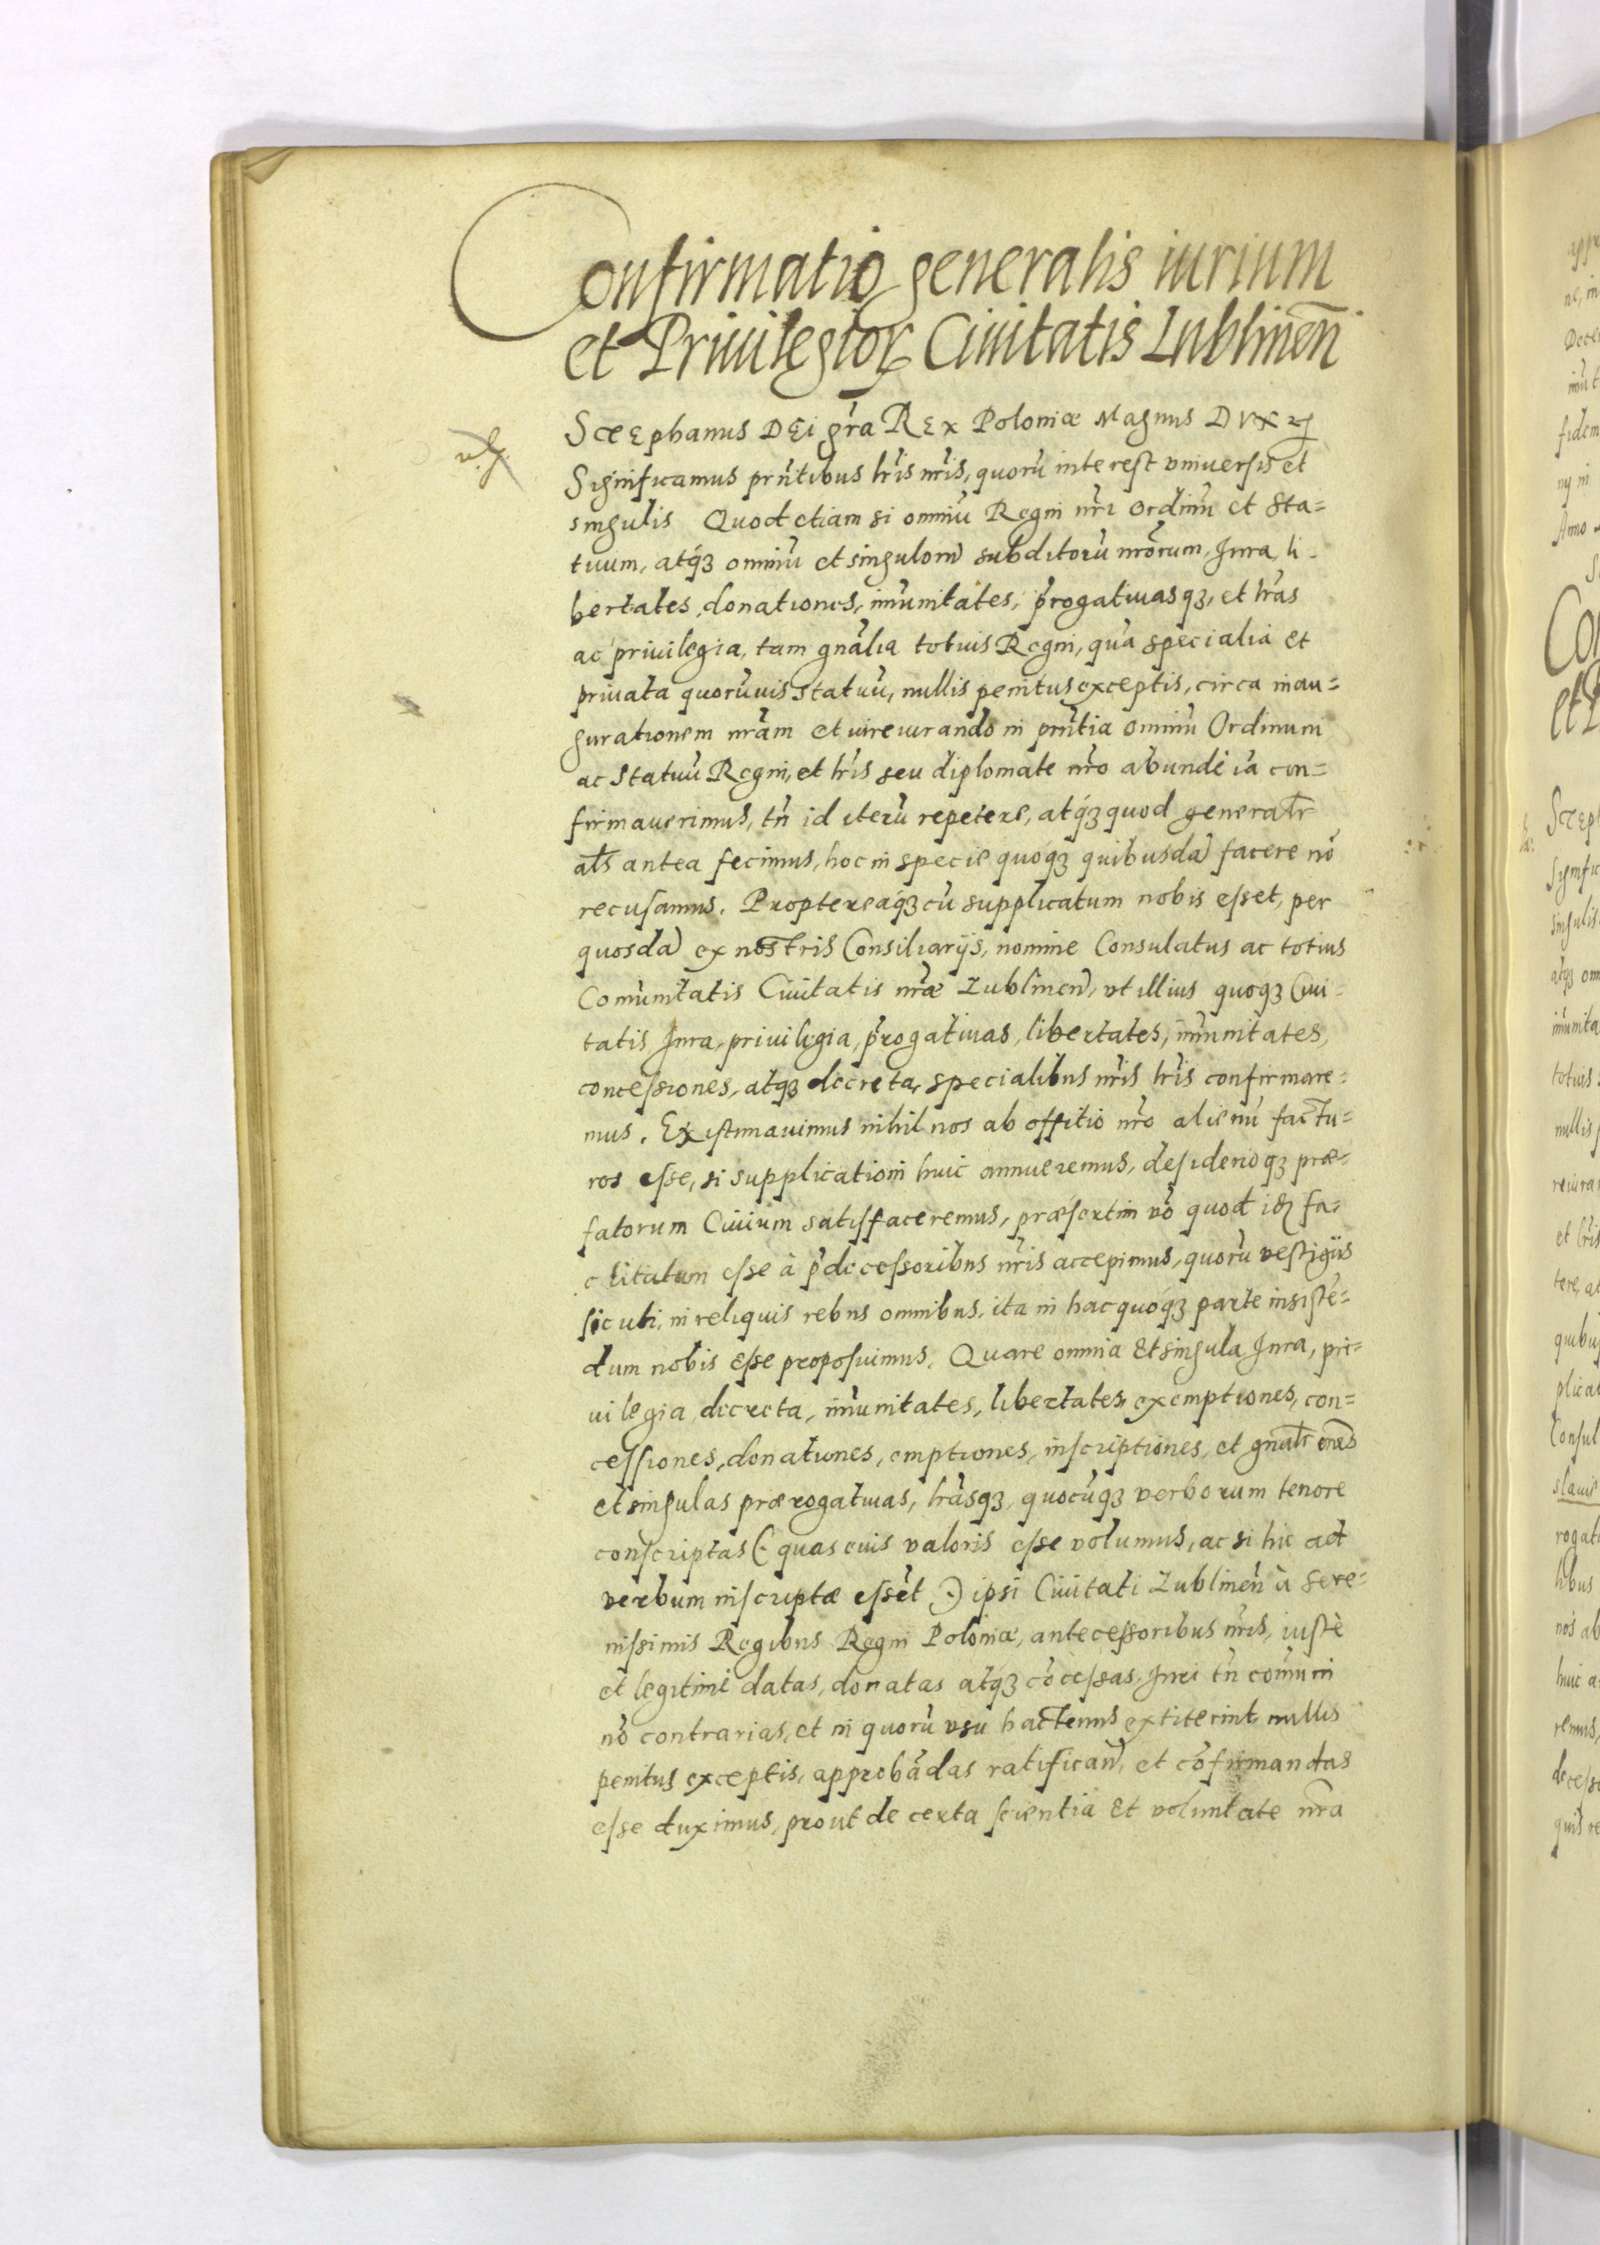 Confirmatio generalis iurium
et Priuilegioꝝ Ciuitatis Lublineñ
Stephanus DEI gr̃a REX Poloniæ Magnus DVX ꝛc̃
Significamus pñtibus lr̃is nr̃is, quorũ interest vniuersis et
singulis Quod etiam si omniũ Regni nr̃i Ordinũ et Sta=
tuum, atq́ꝫ omniũ et singulorũ subditorũ nr̃orum, Iura li-
bertates, donationes, im̃unitates, p̃rogatiuasqꝫ, et lr̃as
ac priuilegia, tam gñalia totius Regni, quã specialia et
priuata quorũuis Statuũ, nullis penitus exceptis, circa inau=
gurationem nr̃am et iureiurando in pñtia omniũ Ordinum
ac Statuũ Regni, et lr̃is seu diplomate nr̃o abundè iã con=
firmauerimus, tñ id iterũ repetere, atq́ꝫ quod generalr̃
als̃ antea fecimus, hoc in specie quóqꝫ quibusdã facere nõ
recusamus. Proptereaq́ꝫ cũ supplicatum nobis esset, per
quosdã ex nostris Consiliarijs, nomine Consulatus ac totius
Com̃unitatis Ciuitatis nr̃æ Lublineñ, vt illius quoqꝫ Ciui-
tatis Iura, priuilegia, p̃rogatiuas, libertates, im̃unitates,
concessiones, atqꝫ decreta, specialibus nr̃is lr̃is confirmare=
mus. Existimauimus nihil nos ab offitio nr̃o alienũ factu=
ros esse, si supplicationi huic annueremus, desiderioqꝫ præ=
fatorum Ciuium satisfaceremus, præsertim vẽo quod id̃ fa=
ctitatum esse à p̃decessoribus nr̃is accepimus, quorũ vestigijs
sicuti, in reliquis rebus omnibus, ita in hac quóqꝫ parte insistẽ=
dum nobis esse proposuimus. Quare omnia Et singula Iura, pri=
uilegia, decreta, im̃unitates, libertates, exemptiones, con=
cessiones, donationes, emptiones, inscriptiones, et gñalr̃ om̃es
et singulas prærogatiuas, lr̃asqꝫ, quocũqꝫ verborum tenore
conscriptas (: quas eius valoris esse volumus, ac si hic ad
verbum inscriptæ essẽt :) ipsi Ciuitati Lublineñ à Sere=
nissimis Regibus Regni Poloniæ, antecessoribus nr̃is, iustè
et legitimè datas, donatas atq́ꝫ cõcessas, Iuri tñ com̃uni
nõ contrarias, et in quorũ vsu hactenus extiterint, nullis
penitus exceptis, approbãdas ratificañ, et cõfirmandas
esse duximus, prout de certa scientia Et voluntate nr̃a